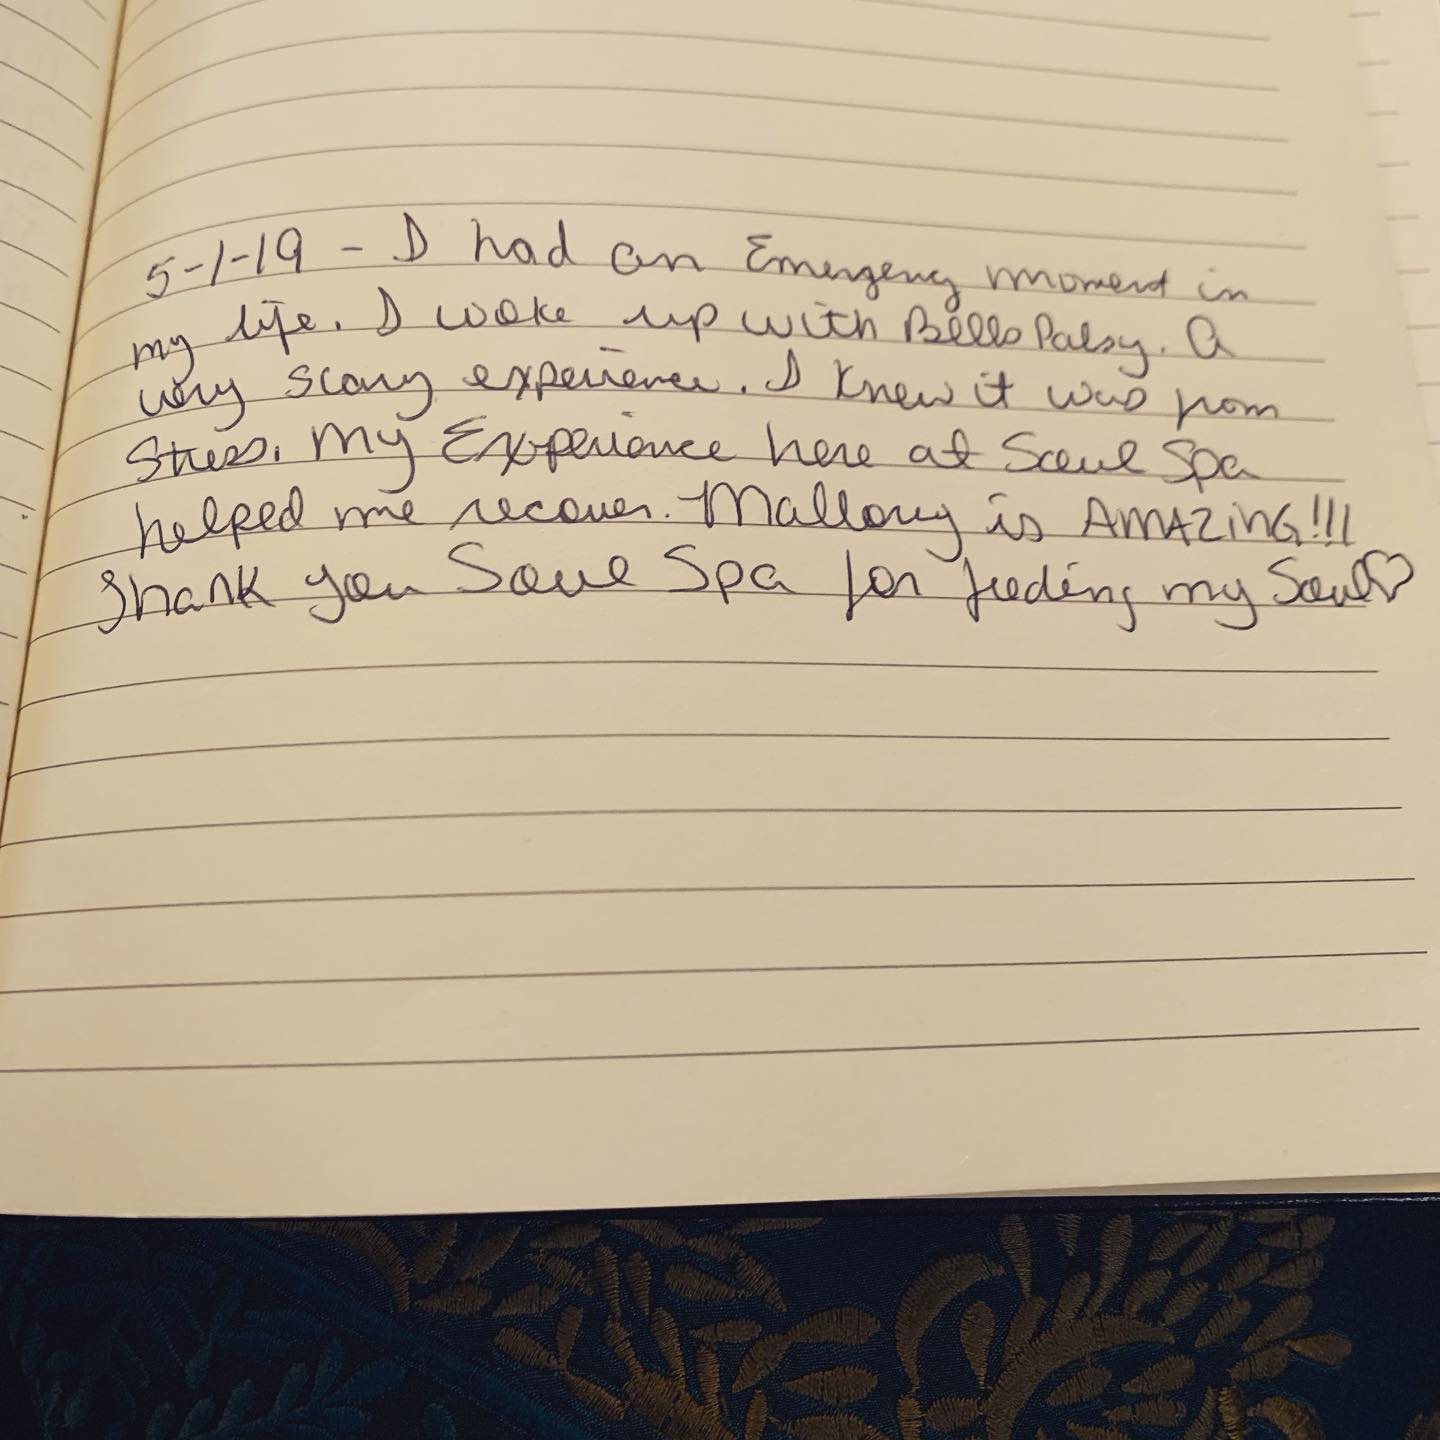 5-1-19 - I had an Emergency moment in
my life. I woke up with Bells Palsy. A
very scary experience. I knew it was from
Stress. My Experience here at Soul Spa
helped me recover. Mallory is AMAZiNG!!!
Thank you Soul Spa for feeding my Soul♡